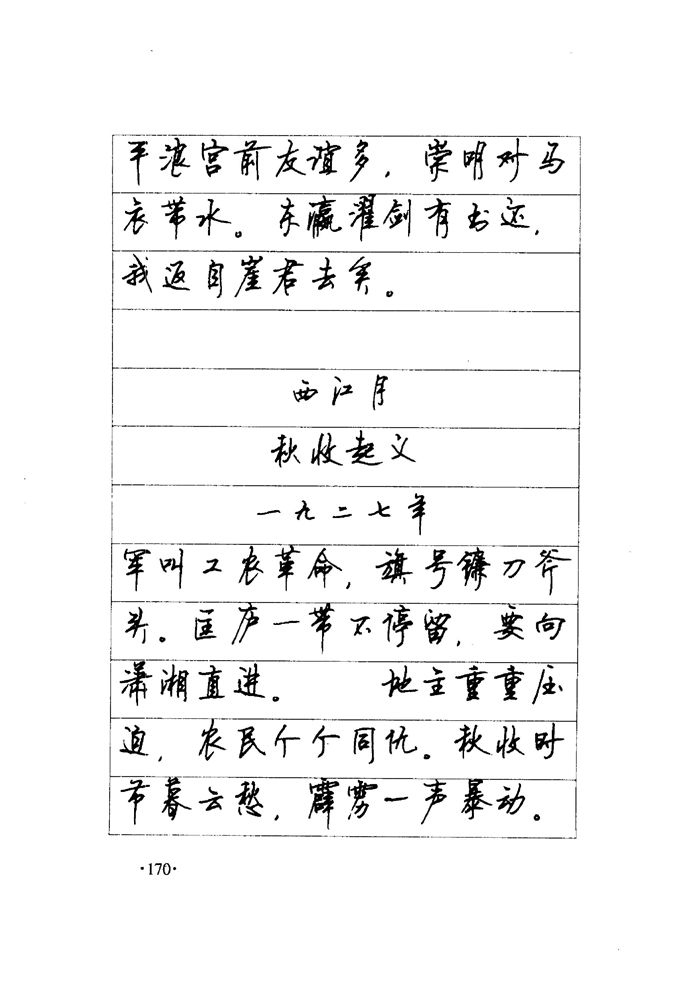 平浪宫前友谊多，崇明对马
衣带水。东瀛濯剑有书还，
我返自崖君去矣。
西江月
秋收起义
一九二七年
军叫工农革命，旗号镰刀斧
头。匡庐一带不停留，要向
潇湘直进。 地主重重压
迫，农民个个同仇。秋收时
节暮云愁，霹雳一声暴动。
·170·